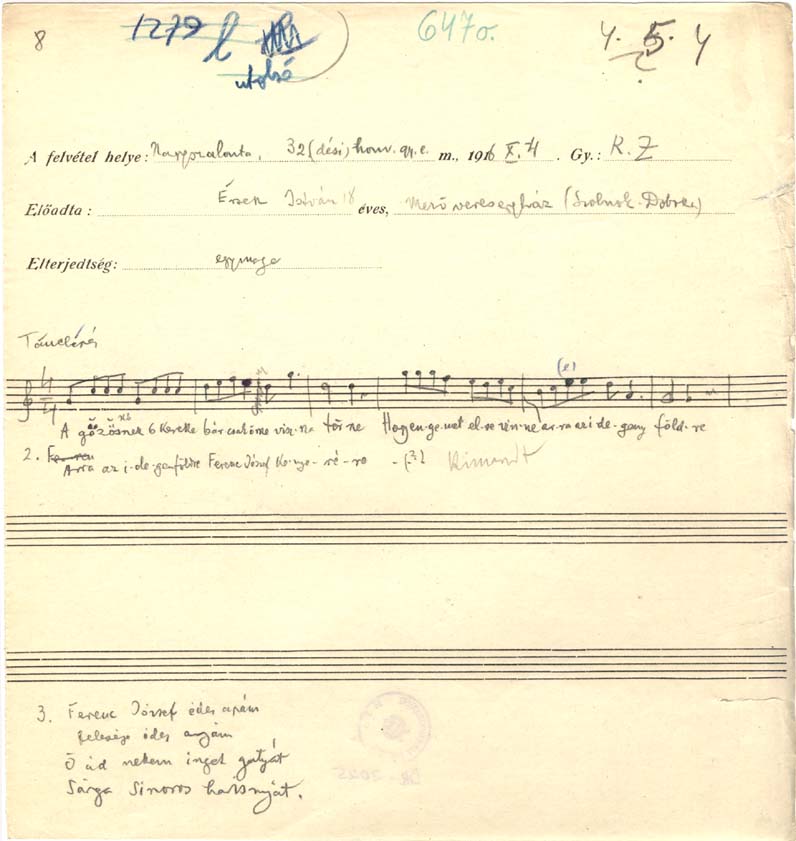 8 1279 l utolsó 6470. 4. 5. 4
A felvétel helye: Nagyszalonta, 32 (dési) honv. gy. e. m., 1916 X. 4. Gy.: K. Z
Előadta: István 18 éves, Mezőveresegyház (Szolnok-Doboka)
Elterjedtség: egymaga
Tánclérés
(e)
A gőzösnek 6 kereke bár csak össze viz-na tör-ne Hogy en-ge-met el-ne vin-ne ar-ra az i-de-geny föld-re
2. Arra az i-de-genföldre Ferenc József ke-nye-ré-re - (?) Kimaradt
3. Ferenc József édes apám
felesége édes anyám
Ő ád nekem inget gatyát
Sárga Sinoros